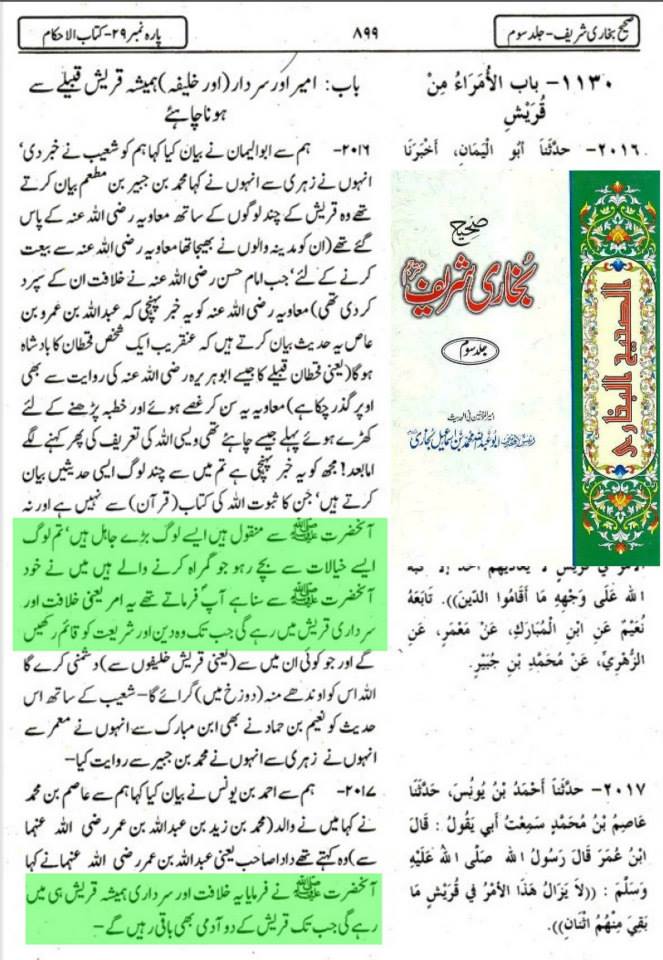 صحیح بخاری شریف - جلد سوم
۸۹۹
پاره نمبر ۲۹- کتاب الاحکام
۱۱۳۰- باب الأُمَرَاءُ مِنْ
قُرَيْشٍ
۲۰۱۶- حدَّثَنَا أَبُو الْيَمَانِ، أَخْبَرَنَا
باب: امیر اور سردار (اور خلیفہ) ہمیشہ قریش قبیلے سے
ہونا چاہئے
۲۰۱۶- ہم سے ابوالیمان نے بیان کیا کہا ہم کو شعیب نے خبر دی'
انہوں نے زہری سے انہوں نے کہا محمد بن جبیر بن مطعم بیان کرتے
تھے وہ قریش کے چند لوگوں کے ساتھ معاویہ رضی اللہ عنہ کے پاس
گئے تھے (ان کو مدینہ والوں نے بھیجا تھا معاویہ رضی اللہ عنہ سے بیعت
کرنے کے لئے' جب امام حسن رضی اللہ عنہ نے خلافت ان کے سپرد
کر دی تھی) معاویہ رضی اللہ عنہ کو یہ خبر پہنچی کہ عبداللہ بن عمرو بن
عاص یہ حدیث بیان کرتے ہیں کہ عنقریب ایک شخص قحطان کا بادشاہ
ہوگا (یعنی قحطان قبیلے کا جیسے ابو ہریرہ رضی اللہ عنہ کی روایت سے بھی
اوپر گذر چکا ہے) معاویہ یہ سن کر غصے ہوئے اور خطبہ پڑھنے کے لئے
کھڑے ہوئے پہلے جیسے چاہئے تھی ویسی اللہ کی تعریف کی پھر کہنے لگے
امابعد! مجھ کو یہ خبر پہنچی ہے تم میں سے چند لوگ ایسی حدیثیں بیان
کرتے ہیں' جن کا ثبوت اللہ کی کتاب (قرآن) سے نہیں ہے اور نہ
آنحضرت ﷺ سے منقول ہیں ایسے لوگ بڑے جاہل ہیں' تم لوگ
ایسے خیالات سے بچے رہو جو گمراہ کرنے والے ہیں میں نے خود
آنحضرت ﷺ سے سنا ہے آپ فرماتے تھے یہ امر یعنی خلافت اور
سرداری قریش میں رہے گی جب تک وہ دین اور شریعت کو قائم رکھیں
گے اور جو کوئی ان میں سے (یعنی قریش خلیفوں سے) دشمنی کرے گا
اللہ اس کو اوندھے منہ (دوزخ میں) گرائے گا- شعیب کے ساتھ اس
حدیث کو نعیم بن حماد نے بھی ابن مبارک سے انہوں نے معمر سے
انہوں نے زہری سے انہوں نے محمد بن جبیر سے روایت کیا-
۲۰۱۷- ہم سے احمد بن یونس نے بیان کیا کہا ہم سے عاصم بن محمد
نے کہا میں نے والد (محمد بن زید بن عبداللہ بن عمر رضی اللہ عنہما
سے) وہ کہتے تھے دادا صاحب یعنی عبداللہ بن عمر رضی اللہ عنہما نے کہا
آنحضرت ﷺ نے فرمایا یہ خلافت اور سرداری ہمیشہ قریش ہی میں
رہے گی جب تک قریش کے دو آدمی بھی باقی رہیں گے-
صحیح
بخاری شریف
جلد سوم
امیر المؤمنین فی الحدیث
ابو عبداللہ محمد بن اسماعیل بخاری
الصحیح البخاری
الله عَلَى وَجْهِهِ مَا أَقَامُوا الدِّينَ)). تَابَعَهُ
نُعَيْمٌ عَنِ ابْنِ الْمُبَارَكِ، عَنْ مَعْمَرٍ، عَنِ
الزُّهْرِيِّ، عَنْ مُحَمَّدِ بْنِ جُبَيْرٍ.
۲۰۱۷- حدَّثَنَا أَحْمَدُ بْنُ يُونُسَ، حَدَّثَنَا
عَاصِمُ بْنُ مُحَمَّدٍ سَمِعْتُ أَبِي يَقُولُ : قَالَ
ابْنُ عُمَرَ قَالَ رَسُولُ الله صَلَّى اللهُ عَلَيْهِ
وَسَلَّمَ : ((لاَ يَزَالُ هَذَا الأَمْرُ فِي قُرَيْشٍ مَا
بَقِيَ مِنْهُمْ اثْنَانِ)).